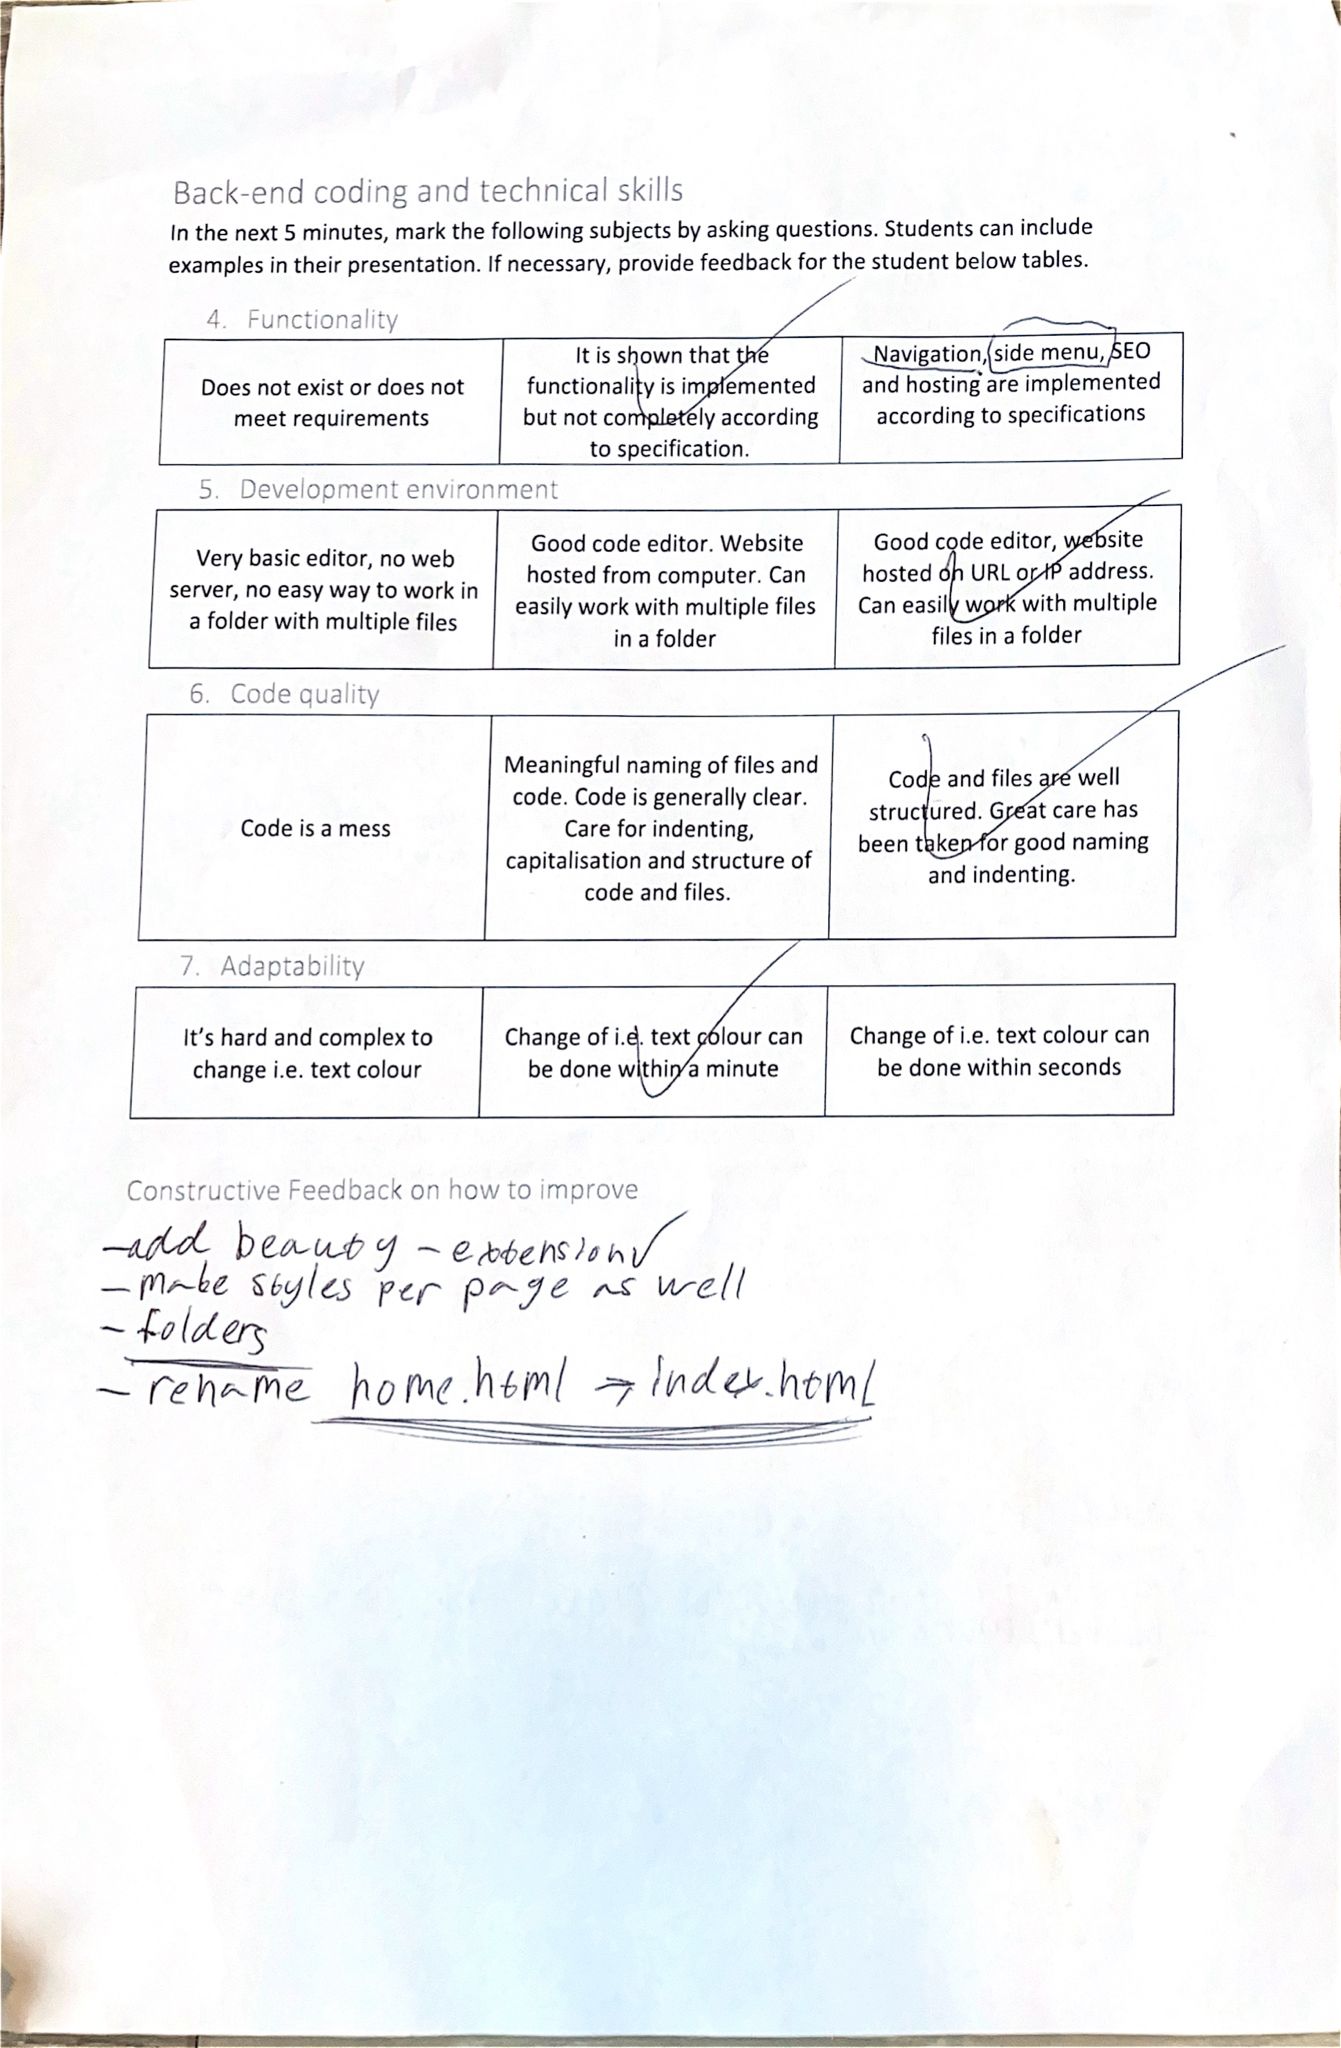 Back-end coding and technical skills
In the next 5 minutes, mark the following subjects by asking questions. Students can include
examples in their presentation. If necessary, provide feedback for the student below tables.
4. Functionality
Does not exist or does not
meet requirements
It is shown that the
functionality is implemented
but not completely according
to specification.
Navigation, side menu, SEO
and hosting are implemented
according to specifications
5. Development environment
Very basic editor, no web
server, no easy way to work in
a folder with multiple files
Good code editor. Website
hosted from computer. Can
easily work with multiple files
in a folder
Good code editor, website
hosted on URL or IP address.
Can easily work with multiple
files in a folder
6. Code quality
Code is a mess
Meaningful naming of files and
code. Code is generally clear.
Care for indenting,
capitalisation and structure of
code and files.
Code and files are well
structured. Great care has
been taken for good naming
and indenting.
7. Adaptability
It's hard and complex to
change i.e. text colour
Change of i.e. text colour can
be done within a minute
Change of i.e. text colour can
be done within seconds
Constructive Feedback on how to improve
- add beauty - extension ✓
- make styles per page as well
- folders
- rename home.html → index.html